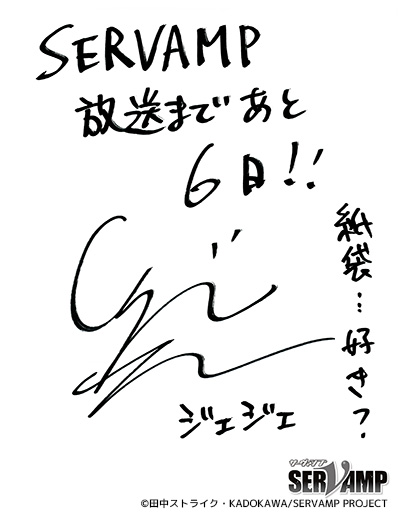 SERVAMP
放送まであと
6日!!
紙袋…好き?
ジェジェ
サーヴァンプ
SERVAMP
©田中ストライク・KADOKAWA/SERVAMP PROJECT